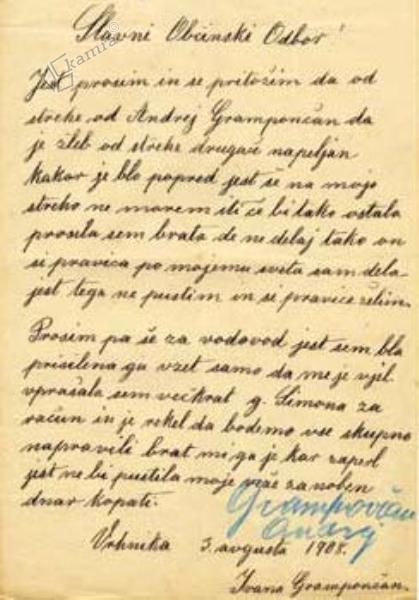 Slavni Občinski Odbor!
kamra
Jest prosim in se pritožim da od
strehe od Andrej Grampončan da
je žleb od strehe drugač napeljan
kakor je blo popred jest se na mojo
streho ne morem iti če bi tako ostalo
prosila sem brata de ne delaj tako on
si pravica po mojemu sveta sam dela
jest tega ne pustim in si pravice želim.
Prosim pa še za vodovod jest sem bla
prisilena ga vzet samo da me je vjel
vprašala sem večkrat g. Simona za
račun in je rekel da bodemo vse skupno
napravili brat mi ga je kar zaperl
jest ne bi pustila moje več za noben
dnar kopati.
Grampovčan
Andrej
Vrhnika 3. avgusta 1908.
Ivana Grampončan.